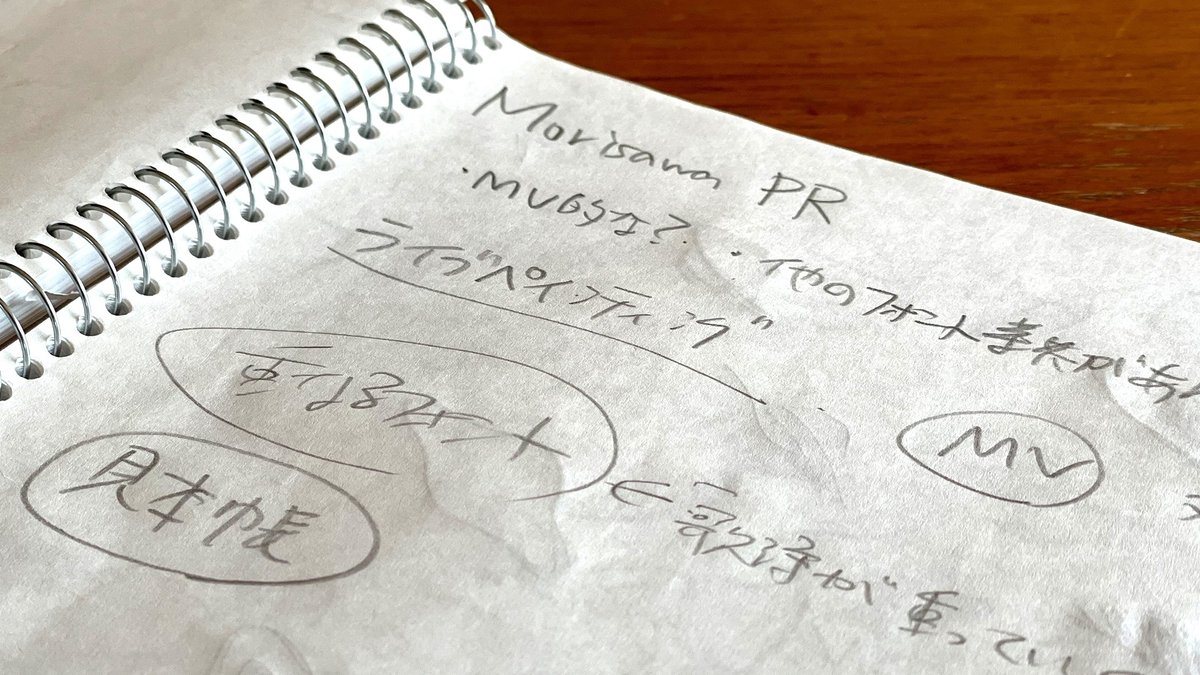 Morisawa PR
・MV的な?
・他のフォント事例があ
ライブペインティング
重なるフォント
MV
見本帳
← 歌詩が重ってい